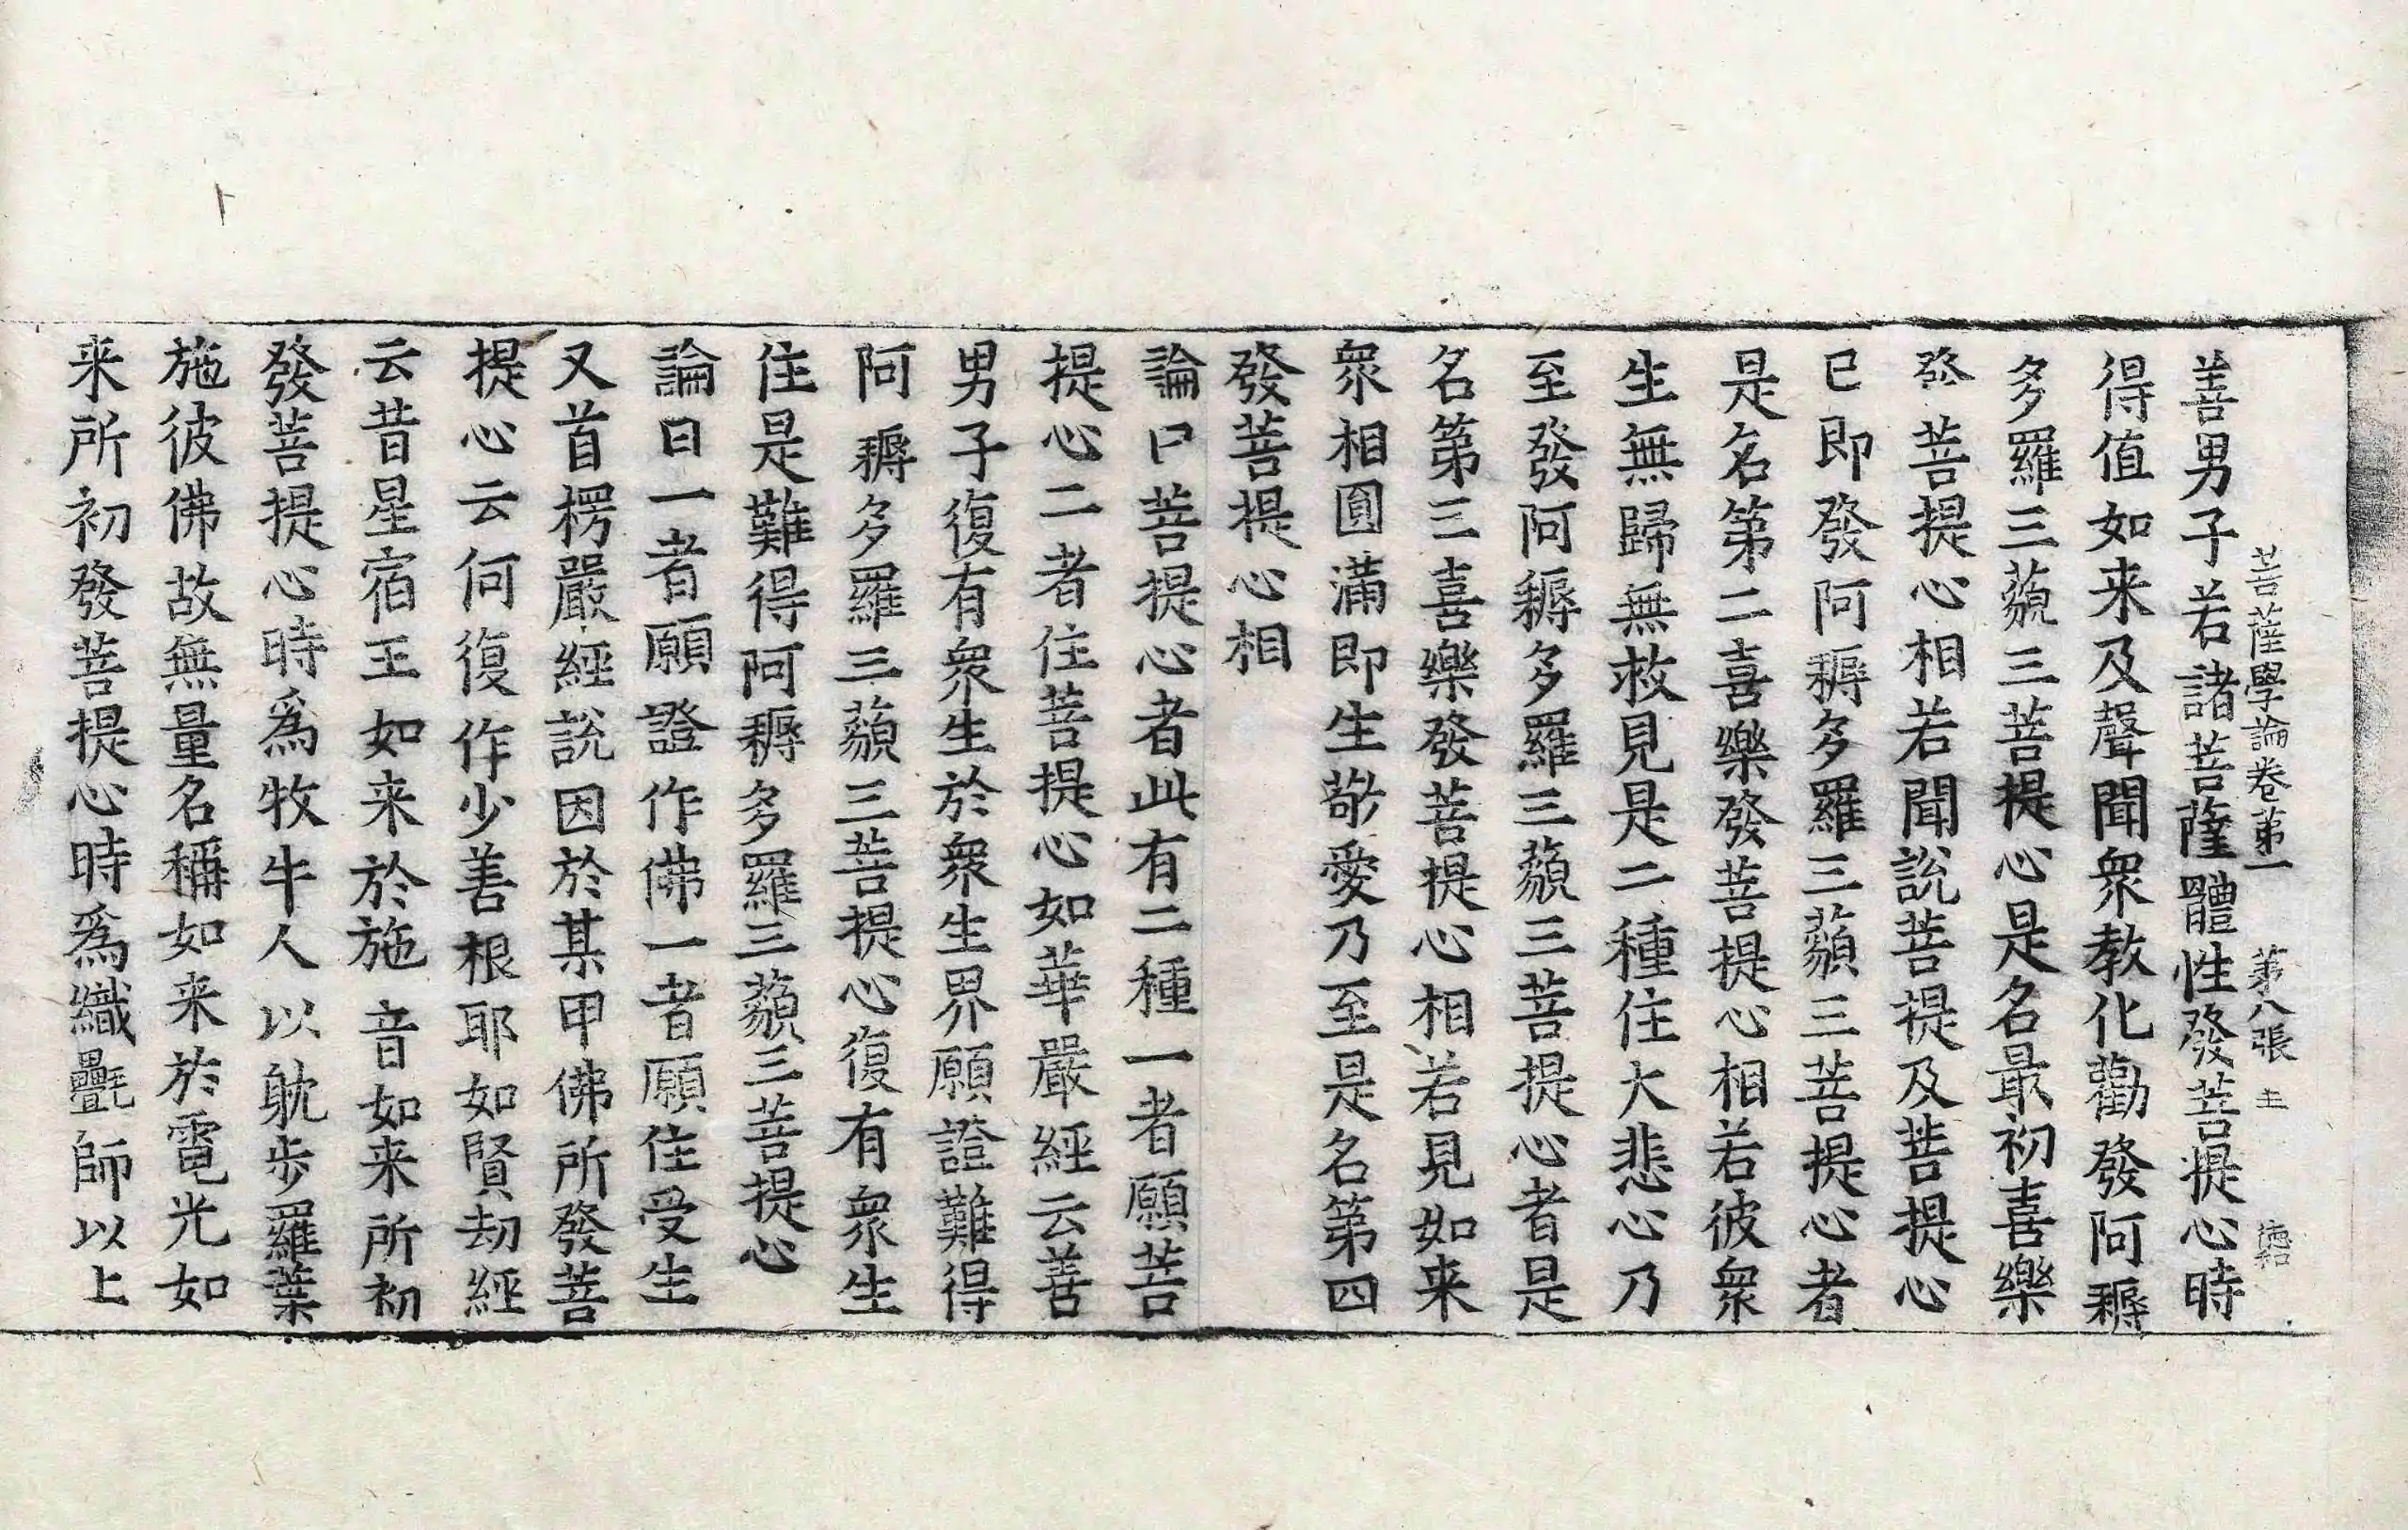 菩薩學論卷第一　第八張　主　德和
善男子若諸菩薩體性發菩提心時
得值如来及聲聞衆教化勸發阿耨
多羅三藐三菩提心是名最初喜樂
發菩提心相若聞說菩提及菩提心
已即發阿耨多羅三藐三菩提心者
是名第二喜樂發菩提心相若彼衆
生無歸無救見是二種住大悲心乃
至發阿耨多羅三藐三菩提心者是
名第三喜樂發菩提心相若見如来
衆相圓滿即生敬愛乃至是名第四
發菩提心相
論曰菩提心者此有二種一者願菩
提心二者住菩提心如華嚴經云善
男子復有衆生於衆生界願證難得
阿耨多羅三藐三菩提心復有衆生
住是難得阿耨多羅三藐三菩提心
論曰一者願證作佛一者願住受生
又首楞嚴經說因於某甲佛所發菩
提心云何復作少善根耶如賢劫經
云昔星宿王如来於施音如来所初
發菩提心時爲牧牛人以躭步羅葉
施彼佛故無量名稱如来於電光如
来所初發菩提心時爲織氎師以上